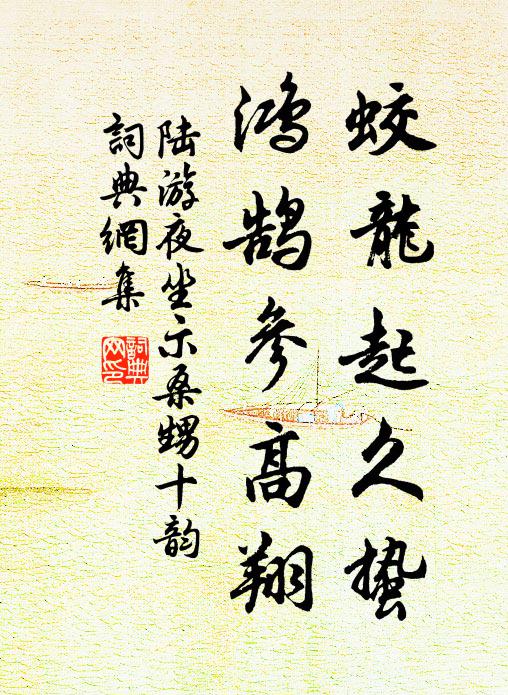 蛟龍起久蟄
鴻鵠參高翔
陸游夜坐示桑甥十韵
詞典網集
詞典網印